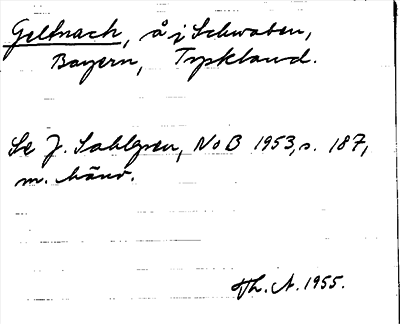 Geltnach, å i Schwaben,
Bayern, Tyskland.
Se J. Sahlgren, NoB 1953, s. 187,
m. hänv.
Th. A. 1955.